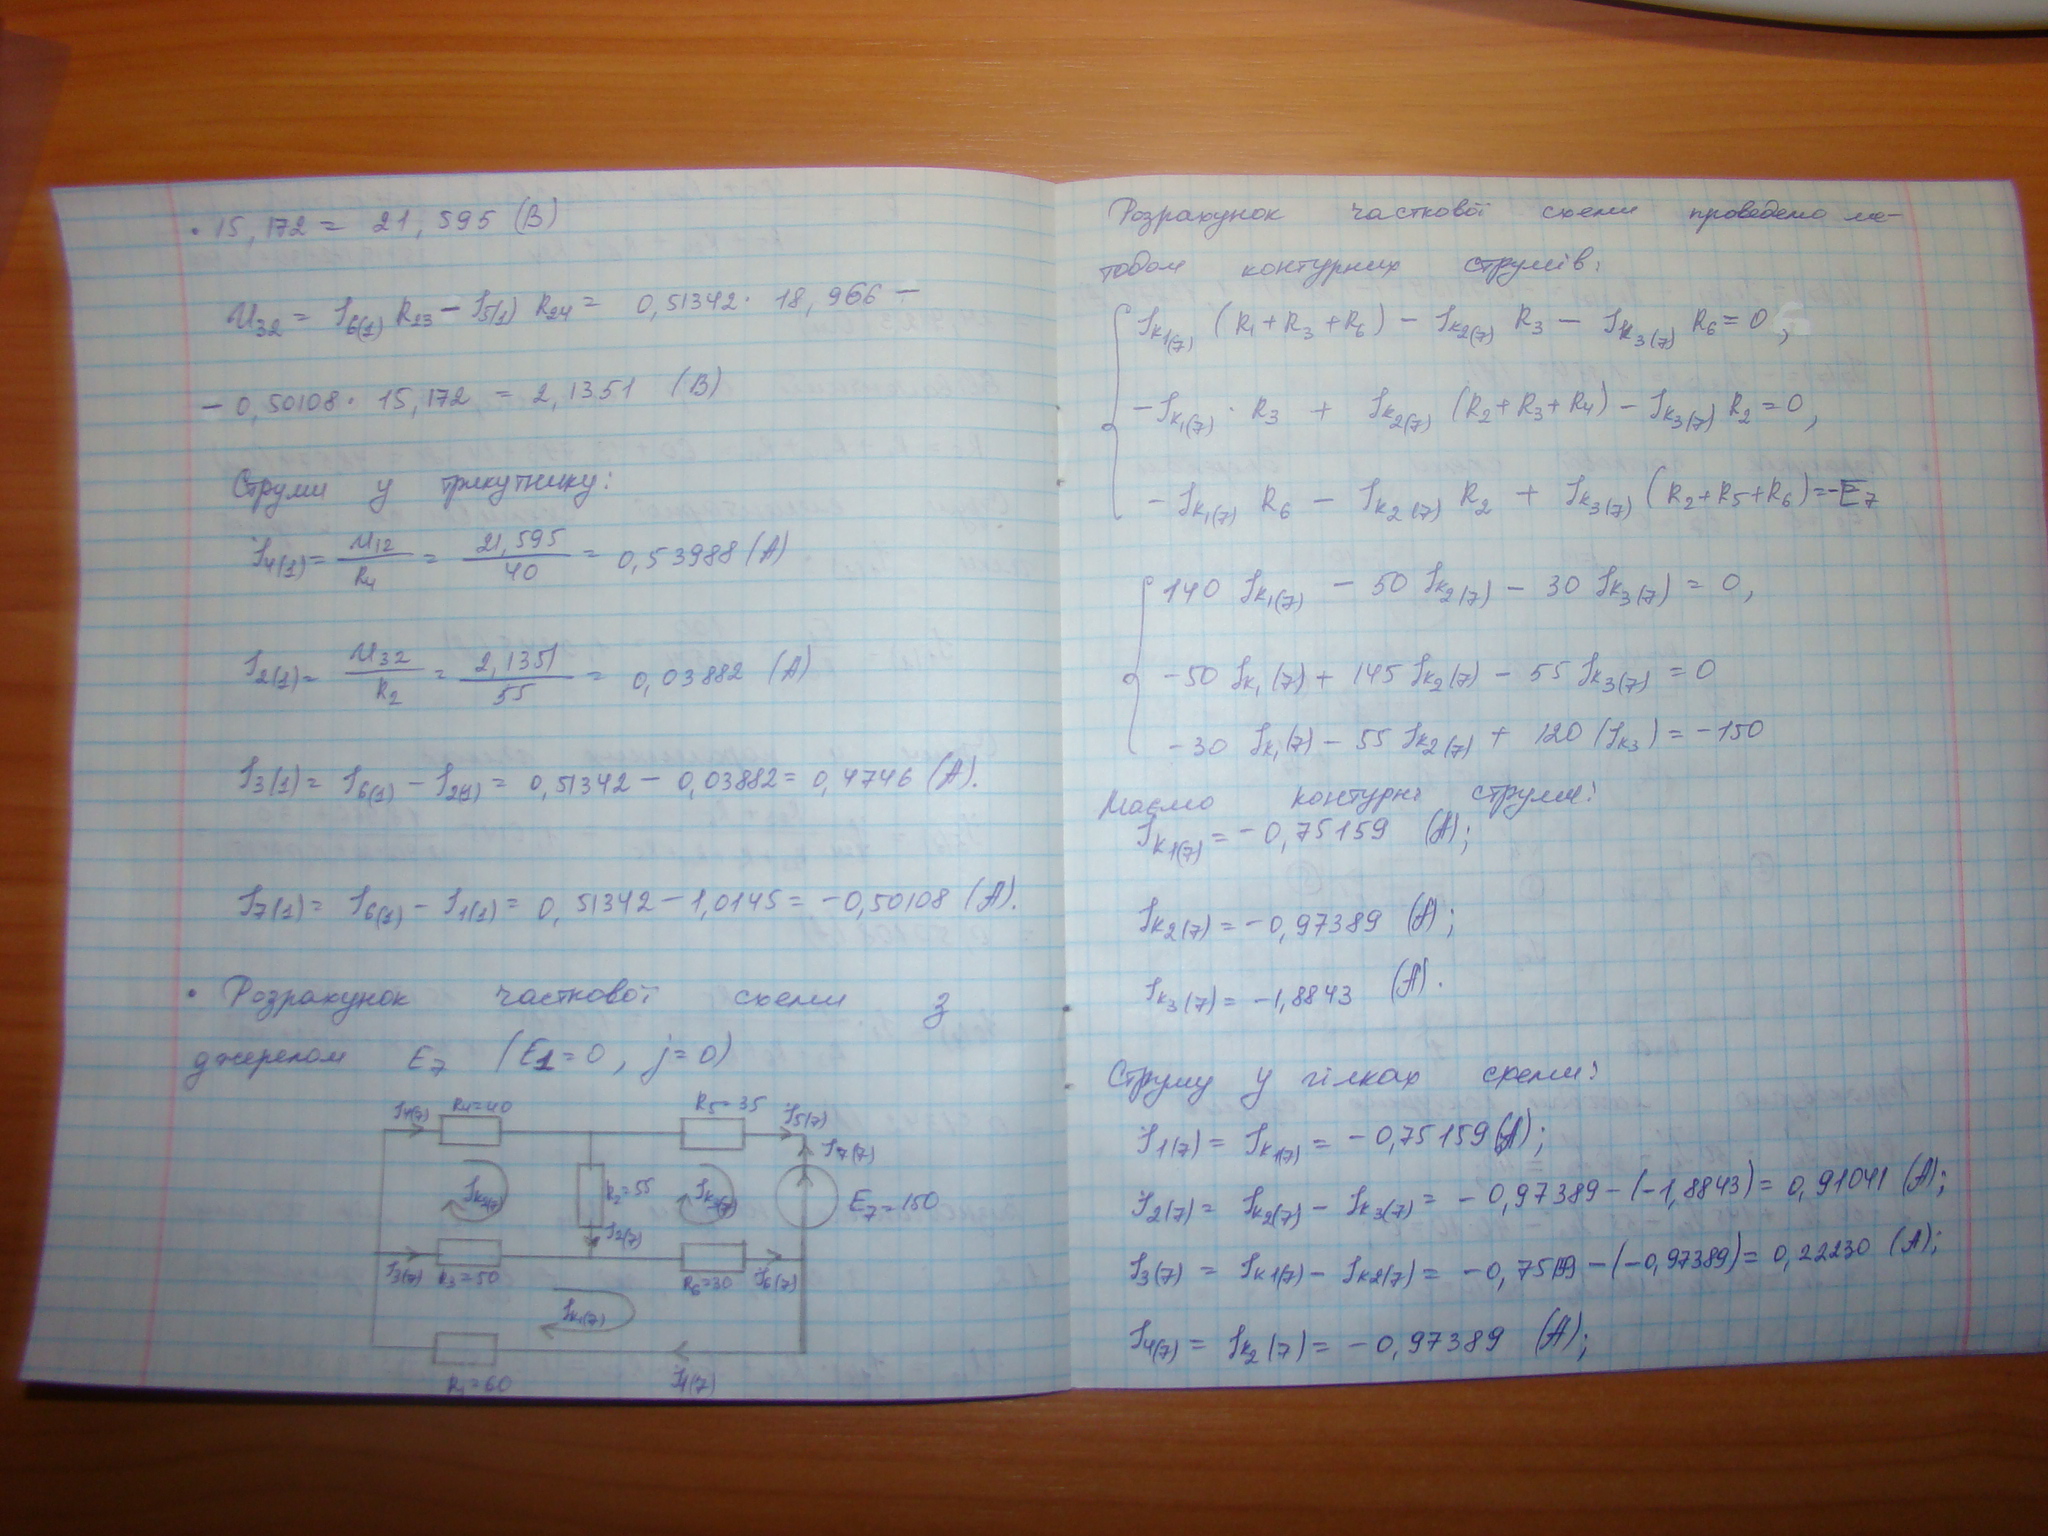 · 15,172 = 21,595 (В)
U32 = I6(1) R23 − I5(1) R24 = 0,51342 · 18,966 −
− 0,50108 · 15,172 = 2,1351 (В)
Струми у трикутнику:
I4(1) = U12/R4 = 21,595/40 = 0,53988 (А)
I2(1) = U32/R2 = 2,1351/55 = 0,03882 (А)
I3(1) = I6(1) − I2(1) = 0,51342 − 0,03882 = 0,4746 (А).
I7(1) = I6(1) − I1(1) = 0,51342 − 1,0145 = −0,50108 (А).
• Розрахунок часткової схеми з
джерелом E7 (E1=0, j=0)
I4(7) R4=40 R5=35 I5(7)
I7(7)
Iк2(7) R2=55 Iк3(7) E7=150
I2(7)
I3(7) R3=50 R6=30 I6(7)
Iк1(7)
R1=60 I1(7)
Розрахунок часткової схеми проведено ме-
тодом контурних струмів:
Iк1(7) (R1+R3+R6) − Iк2(7) R3 − Iк3(7) R6 = 0,
−Iк1(7) · R3 + Iк2(7) (R2+R3+R4) − Iк3(7) R2 = 0,
−Iк1(7) R6 − Iк2(7) R2 + Iк3(7) (R2+R5+R6) = −E7
140 Iк1(7) − 50 Iк2(7) − 30 Iк3(7) = 0,
−50 Iк1(7) + 145 Iк2(7) − 55 Iк3(7) = 0
−30 Iк1(7) − 55 Iк2(7) + 120 (Iк3) = −150
Маємо контурні струми:
Iк1(7) = −0,75159 (А);
Iк2(7) = −0,97389 (А);
Iк3(7) = −1,8843 (А).
Струму у гілках схеми:
I1(7) = Iк1(7) = −0,75159 (А);
I2(7) = Iк2(7) − Iк3(7) = −0,97389 − (−1,8843) = 0,91041 (А);
I3(7) = Iк1(7) − Iк2(7) = −0,75159 − (−0,97389) = 0,22230 (А);
I4(7) = Iк2(7) = −0,97389 (А);